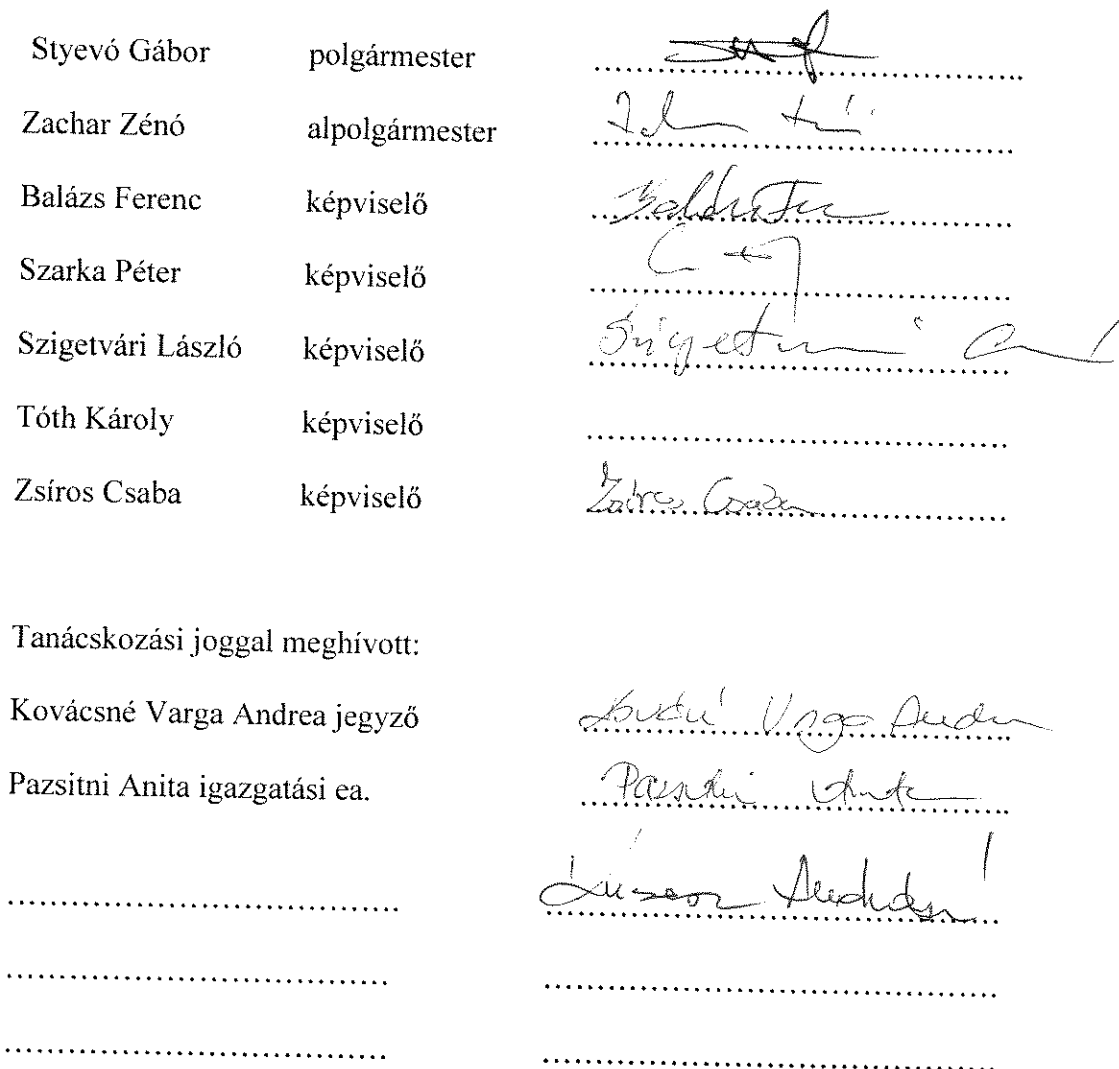 Styevó Gábor polgármester ........................................
Zachar Zénó alpolgármester ........................................
Balázs Ferenc képviselő ........................................
Szarka Péter képviselő ........................................
Szigetvári László képviselő ........................................
Tóth Károly képviselő ........................................
Zsíros Csaba képviselő Zsíros Csaba
Tanácskozási joggal meghívott:
Kovácsné Varga Andrea jegyző Varga
Pazsitni Anita igazgatási ea. Pazsitni Anita
........................................ ........................................
........................................ ........................................
........................................ ........................................